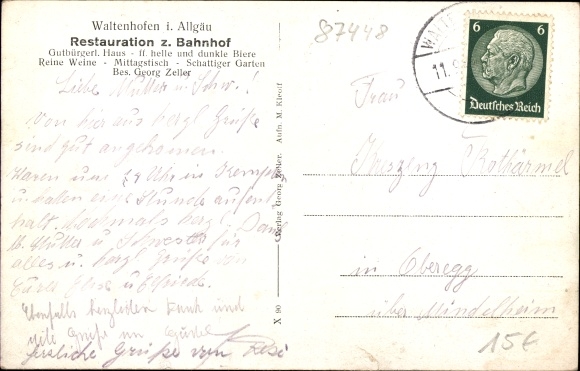 Waltenhofen i. Allgäu
Restauration z. Bahnhof
Gutbürgerl. Haus - ff. helle und dunkle Biere
Reine Weine - Mittagstisch - Schattiger Garten
Bes. Georg Zeller
Liebe Mutter u. Schw.!
Von hier aus herzl. Grüße
sind gut angekommen.
Waren um 9 Uhr in Kempten
u. haben eine Stunde aufent
halt. Nochmals herzl. Dank
lb. Mutter u. Schwester für
alles u. herzl. Grüße von
Ebenfalls herzlichen Dank und
viele Grüße von
herzliche Grüße von Resi
X 90
Verlag Georg Zeller. Aufn. M. Kleoff.
87448
6 6
Deutsches Reich
WALTE
11.9
Frau
Kreszenz Rothärmel
in Oberegg
über Mindelheim
15€